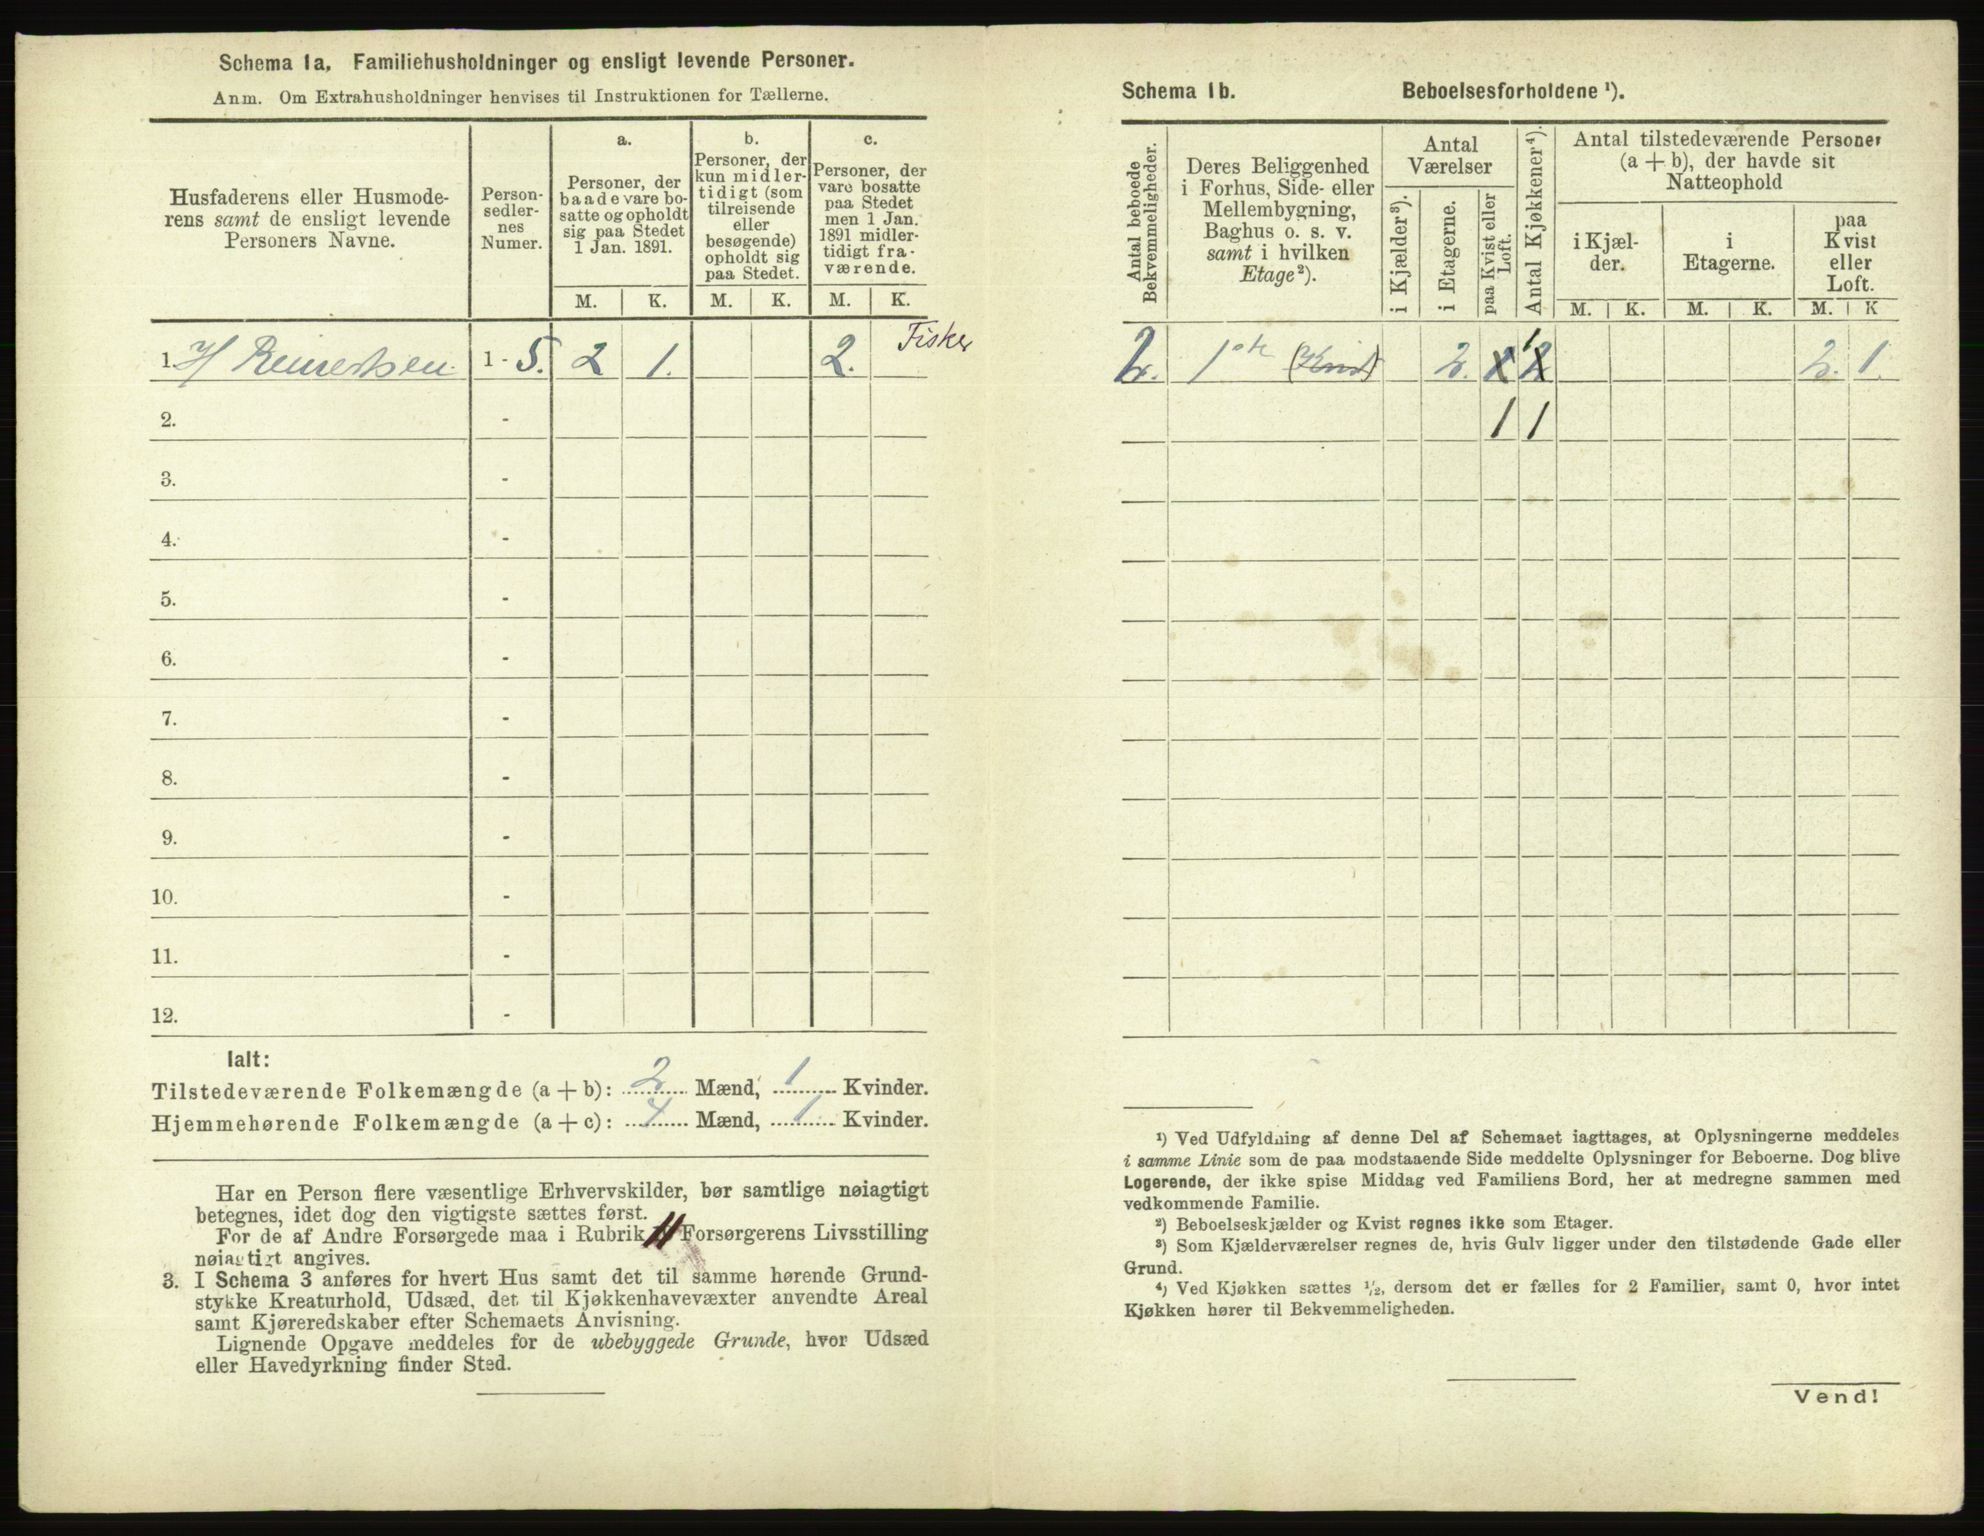 Schema 1a. Familiehusholdninger og ensligt levende Personer.
Anm. Om Extrahusholdninger henvises til Instruktionen for Tællerne.
Husfaderens eller Husmode-
rens samt de ensligt levende
Personers Navne.
Person-
sedler-
nes
Numer.
a.
Personer, der
baade vare bo-
satte og opholdt
sig paa Stedet
1 Jan. 1891.
b.
Personer, der
kun midler-
tidigt (som
tilreisende
eller
besøgende)
opholdt sig
paa Stedet.
c.
Personer, der
vare bosatte
paa Stedet
men 1 Jan.
1891 midler-
tidigt fra-
værende.
M. K. M. K. M. K.
1. H Reinertsen. 1 - 5. 2 1. 2. Fisker
2. -
3. -
4. -
5. -
6. -
7. -
8. -
9. -
10. -
11. -
12. -
Ialt:
Tilstedeværende Folkemængde (a + b): 2 Mænd, 1 Kvinder.
Hjemmehørende Folkemængde (a + c): 4 Mænd, 1 Kvinder.
Har en Person flere væsentlige Erhvervskilder, bør samtlige nøiagtigt
betegnes, idet dog den vigtigste sættes først.
For de af Andre Forsørgede maa i Rubrik 11 Forsørgerens Livsstilling
nøiagtigt angives.
3. I Schema 3 anføres for hvert Hus samt det til samme hørende Grund-
stykke Kreaturhold, Udsæd, det til Kjøkkenhavevæxter anvendte Areal
samt Kjøreredskaber efter Schemaets Anvisning.
Lignende Opgave meddeles for de ubebyggede Grunde, hvor Udsæd
eller Havedyrkning finder Sted.
Schema 1b. Beboelsesforholdene ¹).
Antal beboede
Bekvemmeligheder.
Deres Beliggenhed
i Forhus, Side- eller
Mellembygning,
Baghus o. s. v.
samt i hvilken
Etage²).
Antal
Værelser
i Kjælder³).
i Etagerne.
paa Kvist eller
Loft.
Antal Kjøkkener⁴).
Antal tilstedeværende Personer
(a + b), der havde sit
Natteophold
i Kjæl-
der.
i
Etagerne.
paa
Kvist
eller
Loft.
M. K. M. K. M. K
2. 1ste (Kvist) 2. 1 2. 1.
1 1
¹) Ved Udfyldning af denne Del af Schemaet iagttages, at Oplysningerne meddeles
i samme Linie som de paa modstaaende Side meddelte Oplysninger for Beboerne. Dog blive
Logerende, der ikke spise Middag ved Familiens Bord, her at medregne sammen med
vedkommende Familie.
²) Beboelseskjælder og Kvist regnes ikke som Etager.
³) Som Kjælderværelser regnes de, hvis Gulv ligger under den tilstødende Gade eller
Grund.
⁴) Ved Kjøkken sættes ½, dersom det er fælles for 2 Familier, samt 0, hvor intet
Kjøkken hører til Bekvemmeligheden.
Vend!